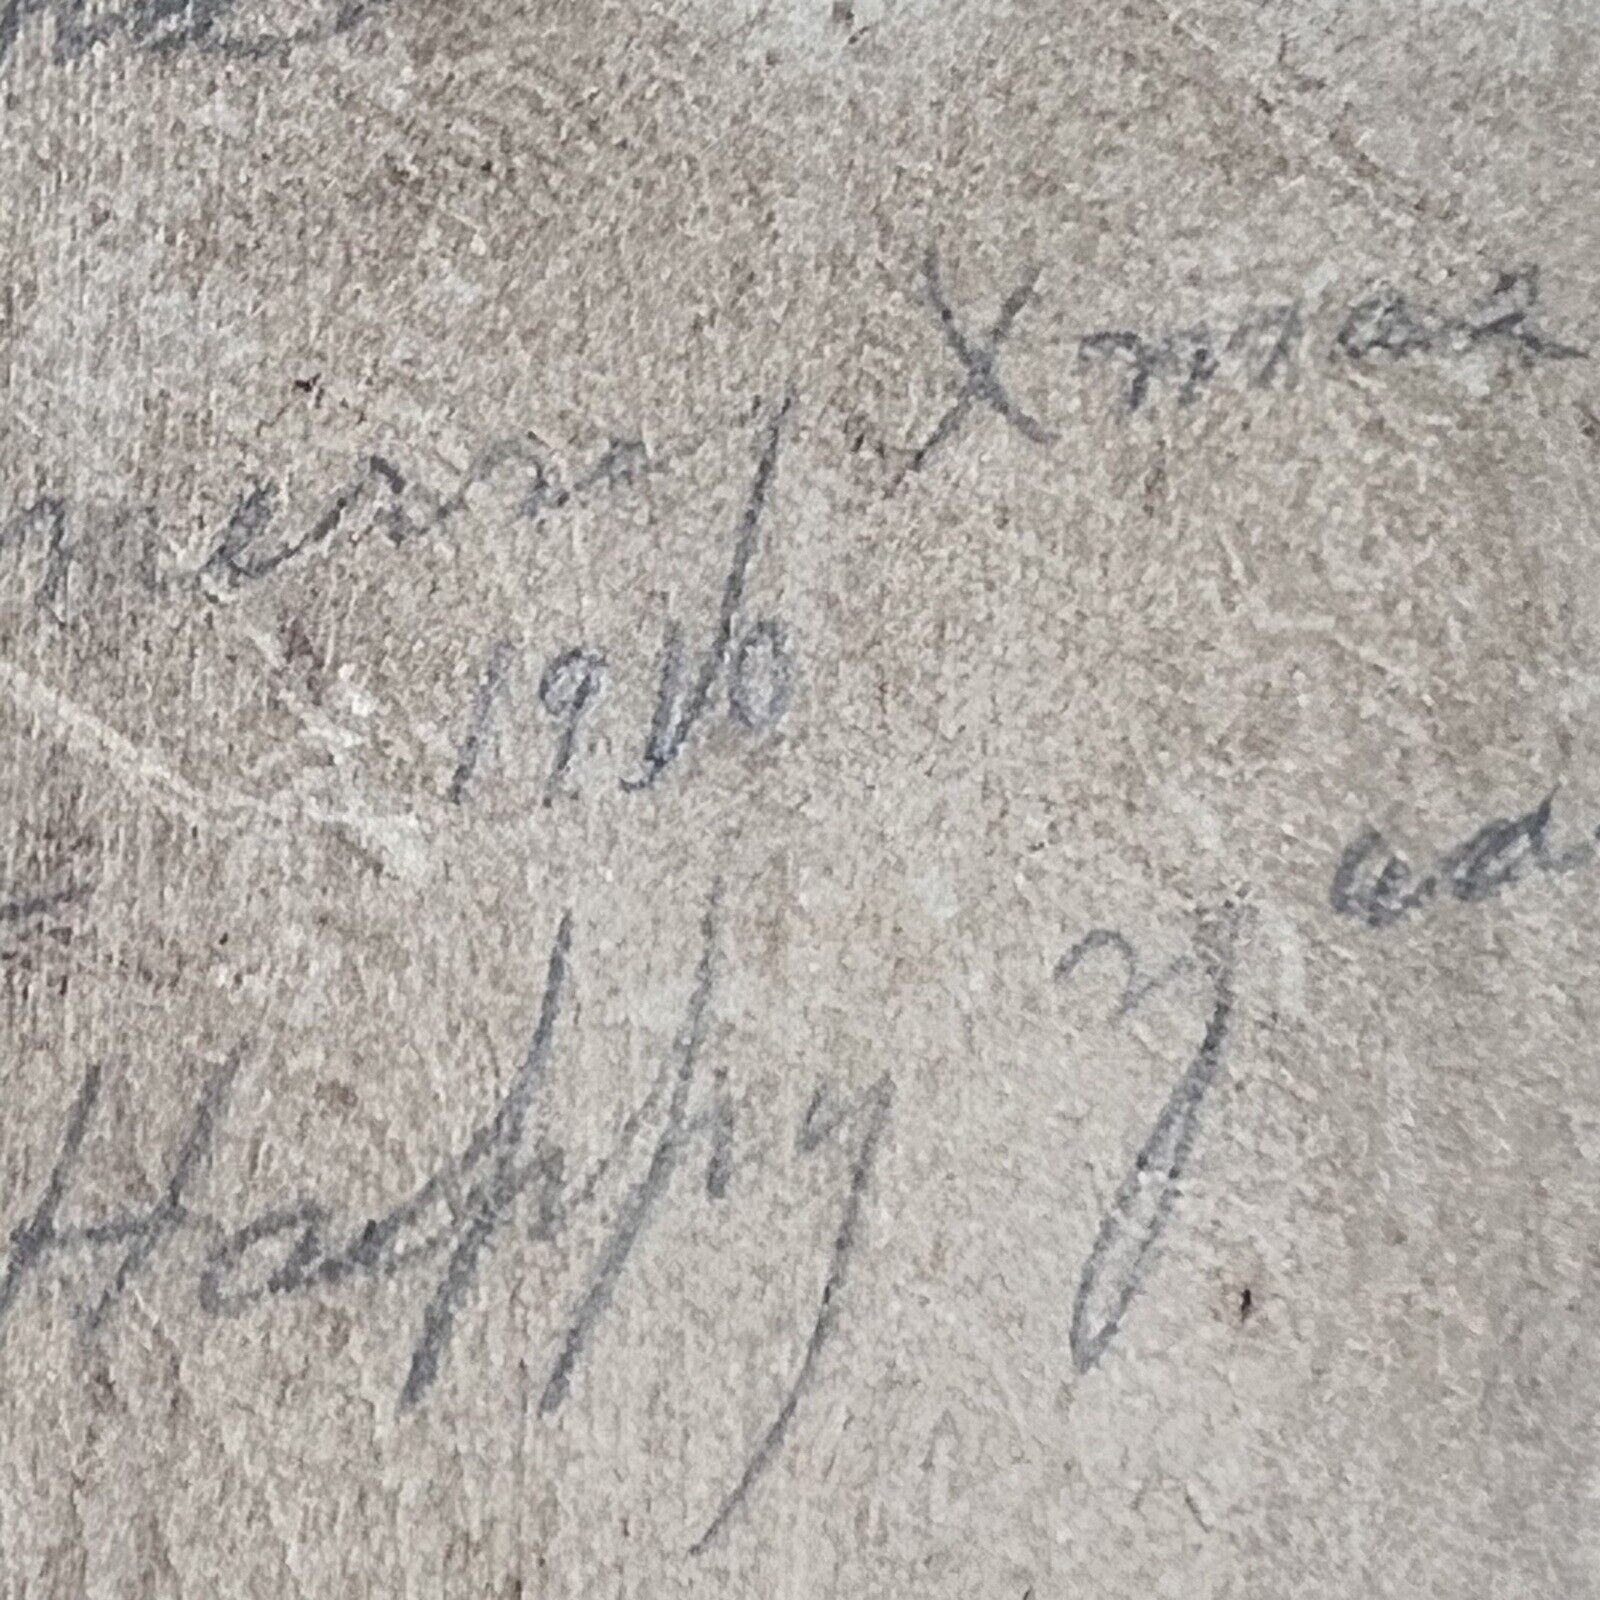 merry Xmas
1910
Happy Year